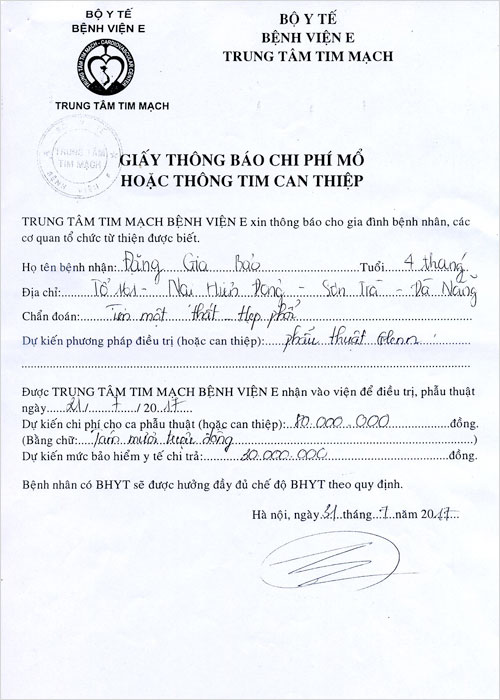 BỘ Y TẾ
BỆNH VIỆN E
TRUNG TÂM TIM MẠCH - CARDIOVASCULAR CENTER
TRUNG TÂM TIM MẠCH
BỘ Y TẾ
BỆNH VIỆN E
TRUNG TÂM TIM MẠCH
TRUNG TÂM
TIM MẠCH
BỆNH VIỆN E
GIẤY THÔNG BÁO CHI PHÍ MỔ
HOẶC THÔNG TIM CAN THIỆP
TRUNG TÂM TIM MẠCH BỆNH VIỆN E xin thông báo cho gia đình bệnh nhân, các
cơ quan tổ chức từ thiện được biết.
Họ tên bệnh nhân: Đặng Gia Bảo Tuổi 4 tháng
Địa chỉ: Tổ - Nại Hiên Đông - Sơn Trà - Đà Nẵng
Chẩn đoán: Tim một thất - Hẹp phổi
Dự kiến phương pháp điều trị (hoặc can thiệp): phẫu thuật Glenn
Được TRUNG TÂM TIM MẠCH BỆNH VIỆN E nhận vào viện để điều trị, phẫu thuật
ngày 21 / 7 / 2017
Dự kiến chi phí cho ca phẫu thuật (hoặc can thiệp): 80.000.000 đồng.
(Bằng chữ: Tám mươi triệu đồng)
Dự kiến mức bảo hiểm y tế chi trả: 30.000.000 đồng.
Bệnh nhân có BHYT sẽ được hưởng đầy đủ chế độ BHYT theo quy định.
Hà nội, ngày 21 tháng 7 năm 2017